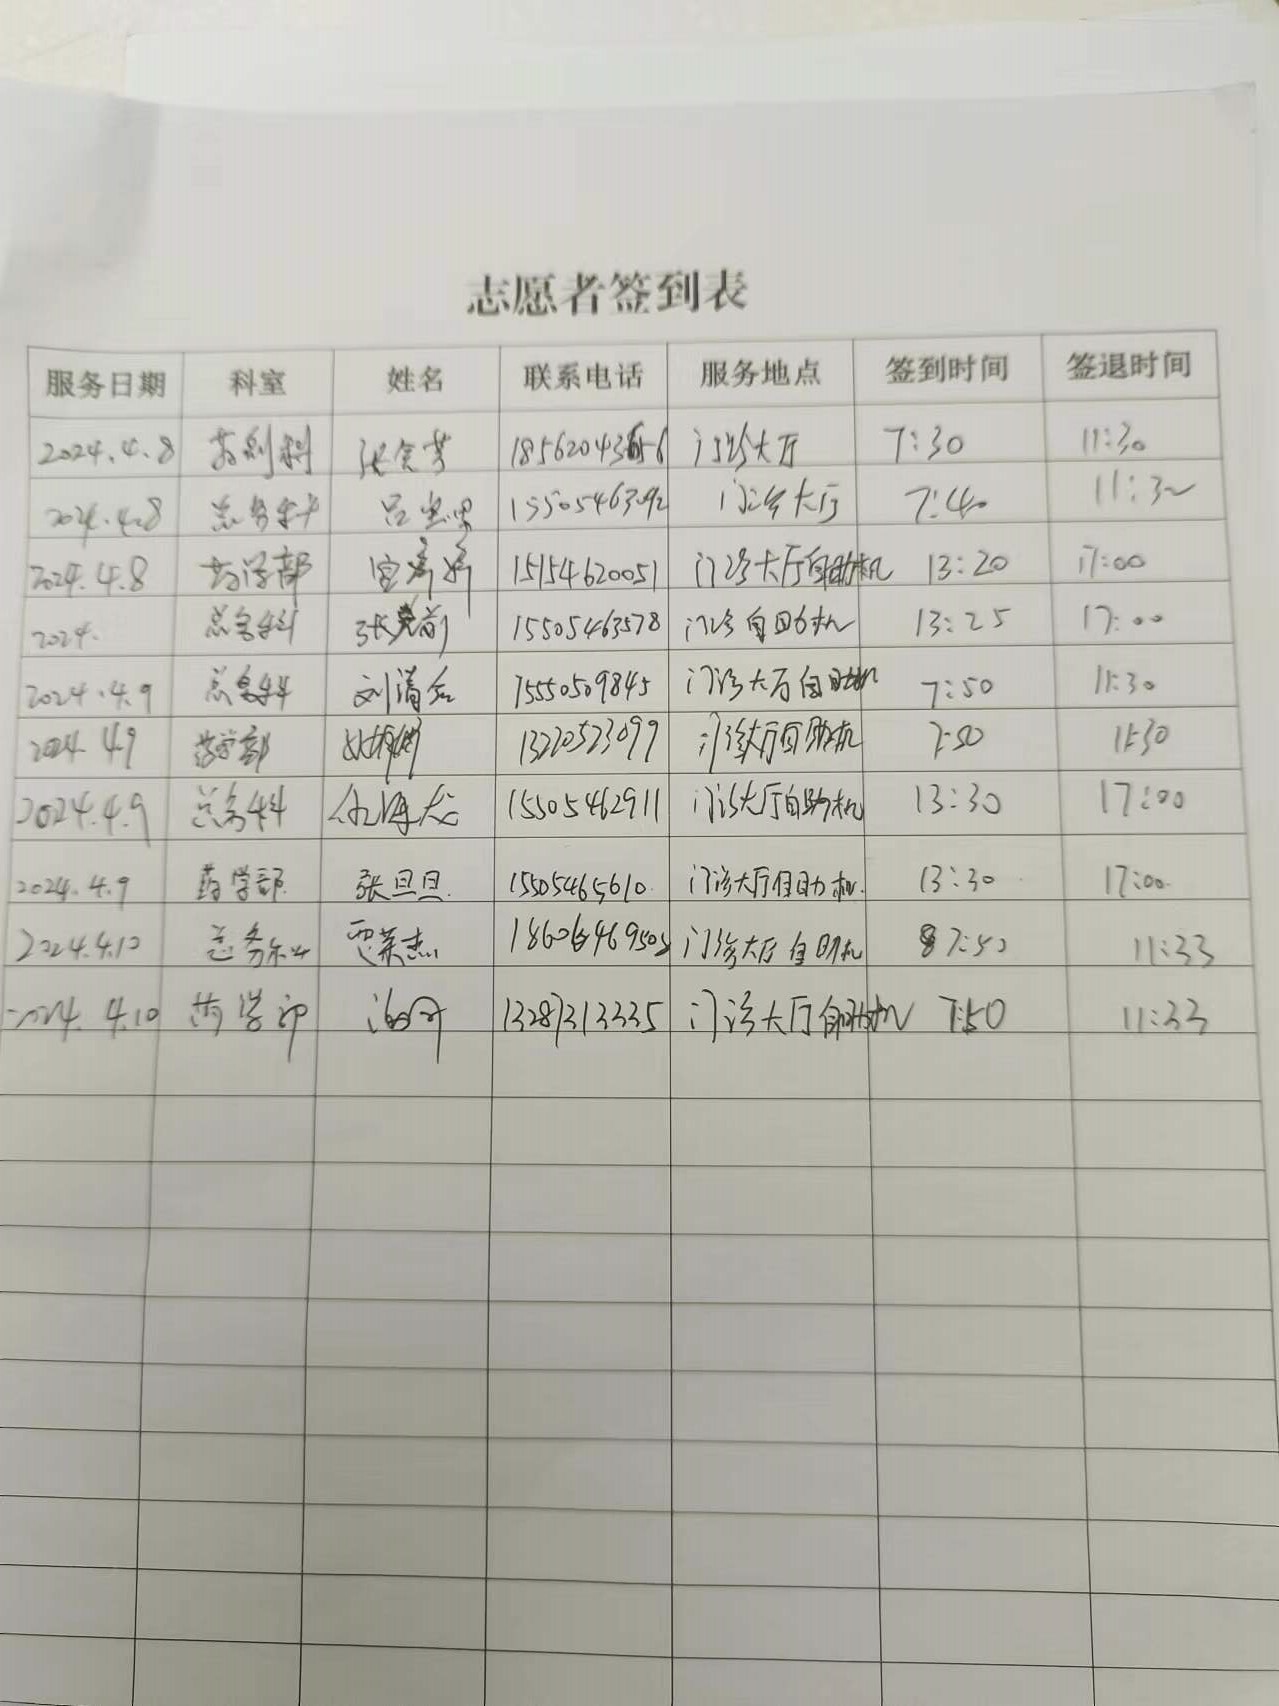 志愿者签到表
服务日期 科室 姓名 联系电话 服务地点 签到时间 签退时间
2024.4.8 药剂科 张会芳 门诊大厅 7:30 11:30
2024.4.8 总务科 15505463092 门诊大厅 7:40 11:30
2024.4.8 药学部 15154620051 门诊大厅自助机 13:20 17:00
2024. 总务科 15505463578 门诊自助机 13:25 17:00
2024.4.9 总务科 刘清 15550509845 门诊大厅自助机 7:50 11:30
2024.4.9 药学部 13220523099 门诊大厅自助机 7:50 11:30
2024.4.9 总务科 15505462911 门诊大厅自助机 13:30 17:00
2024.4.9 药学部 张旦旦 15505465610 门诊大厅自助机 13:30 17:00
2024.4.10 总务科 贾荣杰 门诊大厅自助机 7:50 11:33
2024.4.10 药学部 13287313335 门诊大厅自助机 7:50 11:33